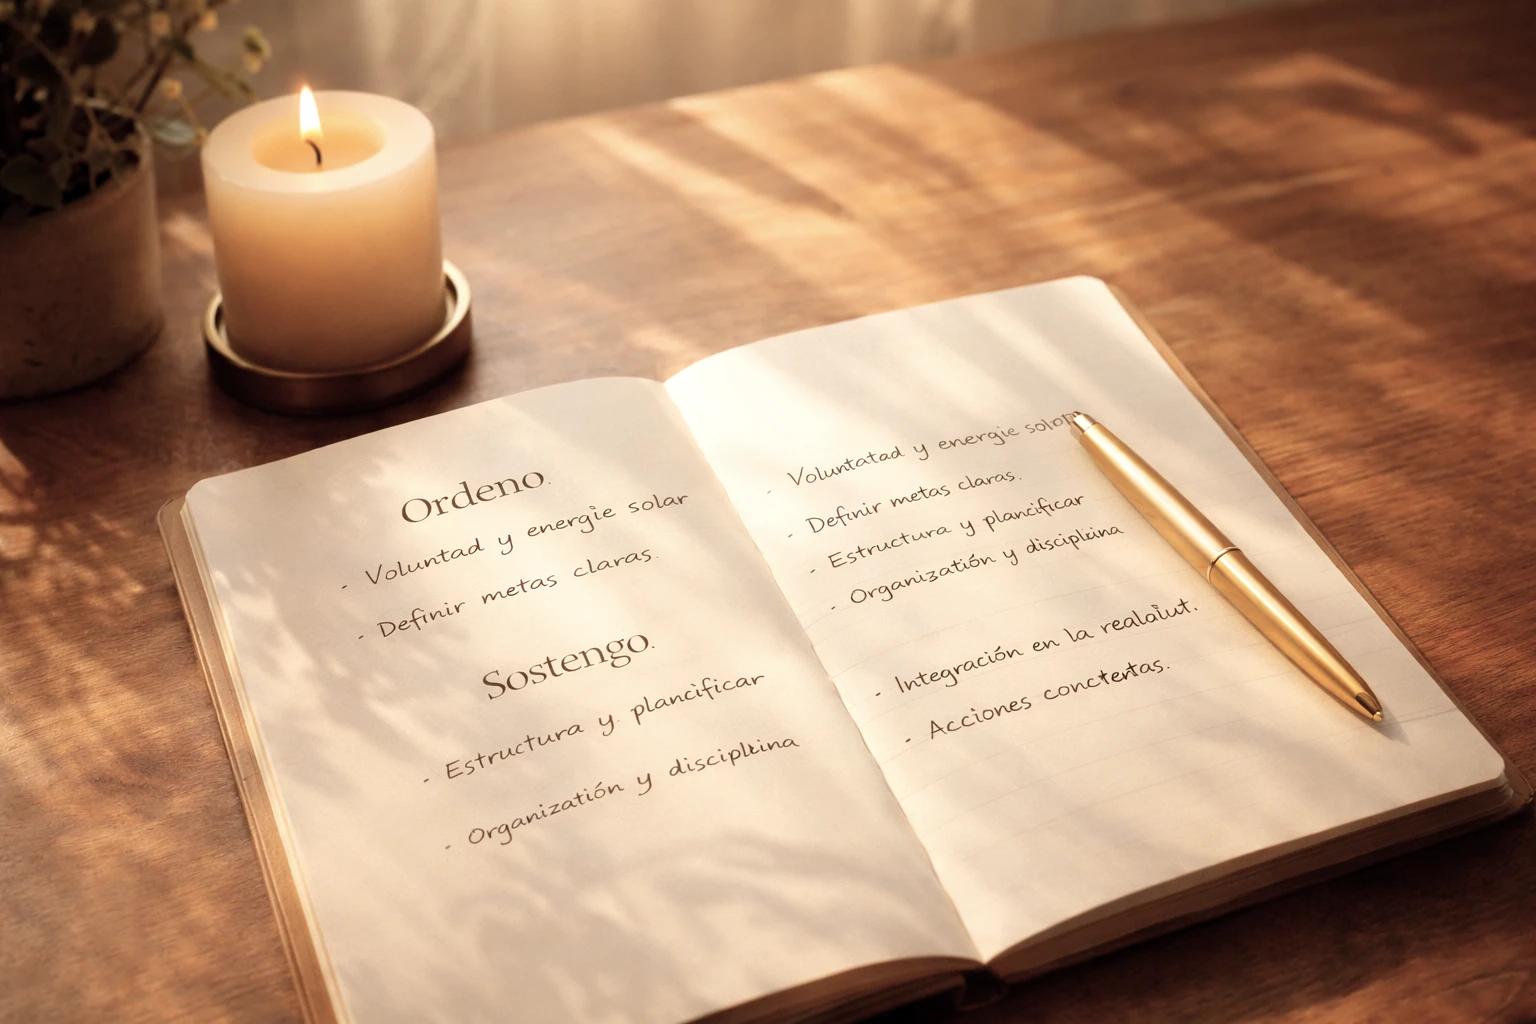 Ordeno.
- Voluntad y energie solar
- Definir metas claras.
Sostengo.
- Estructura y plancificar
- Organizatión y discipluina
- Voluntatad y energie solor
- Definir metas claras.
- Estructura y plancificar
- Organizatión y discipluina
- Integración en la realaiut.
- Acciones conctertas.